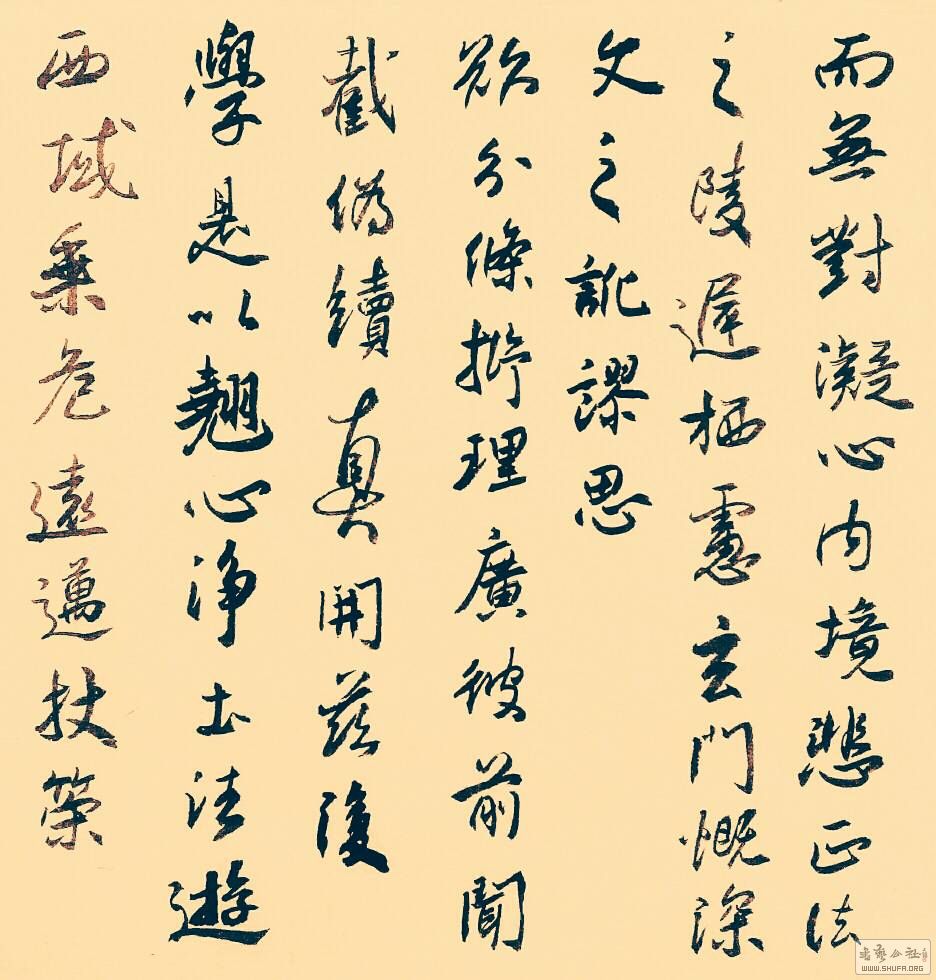 而無對凝心内境悲正法
之陵遲栖慮玄門慨深
文之訛謬思
欲分條析理廣彼前聞
截偽續真開茲後
學是以翹心淨土法遊
西域乘危遠邁杖策
书艺公社
WWW.SHUFA.ORG